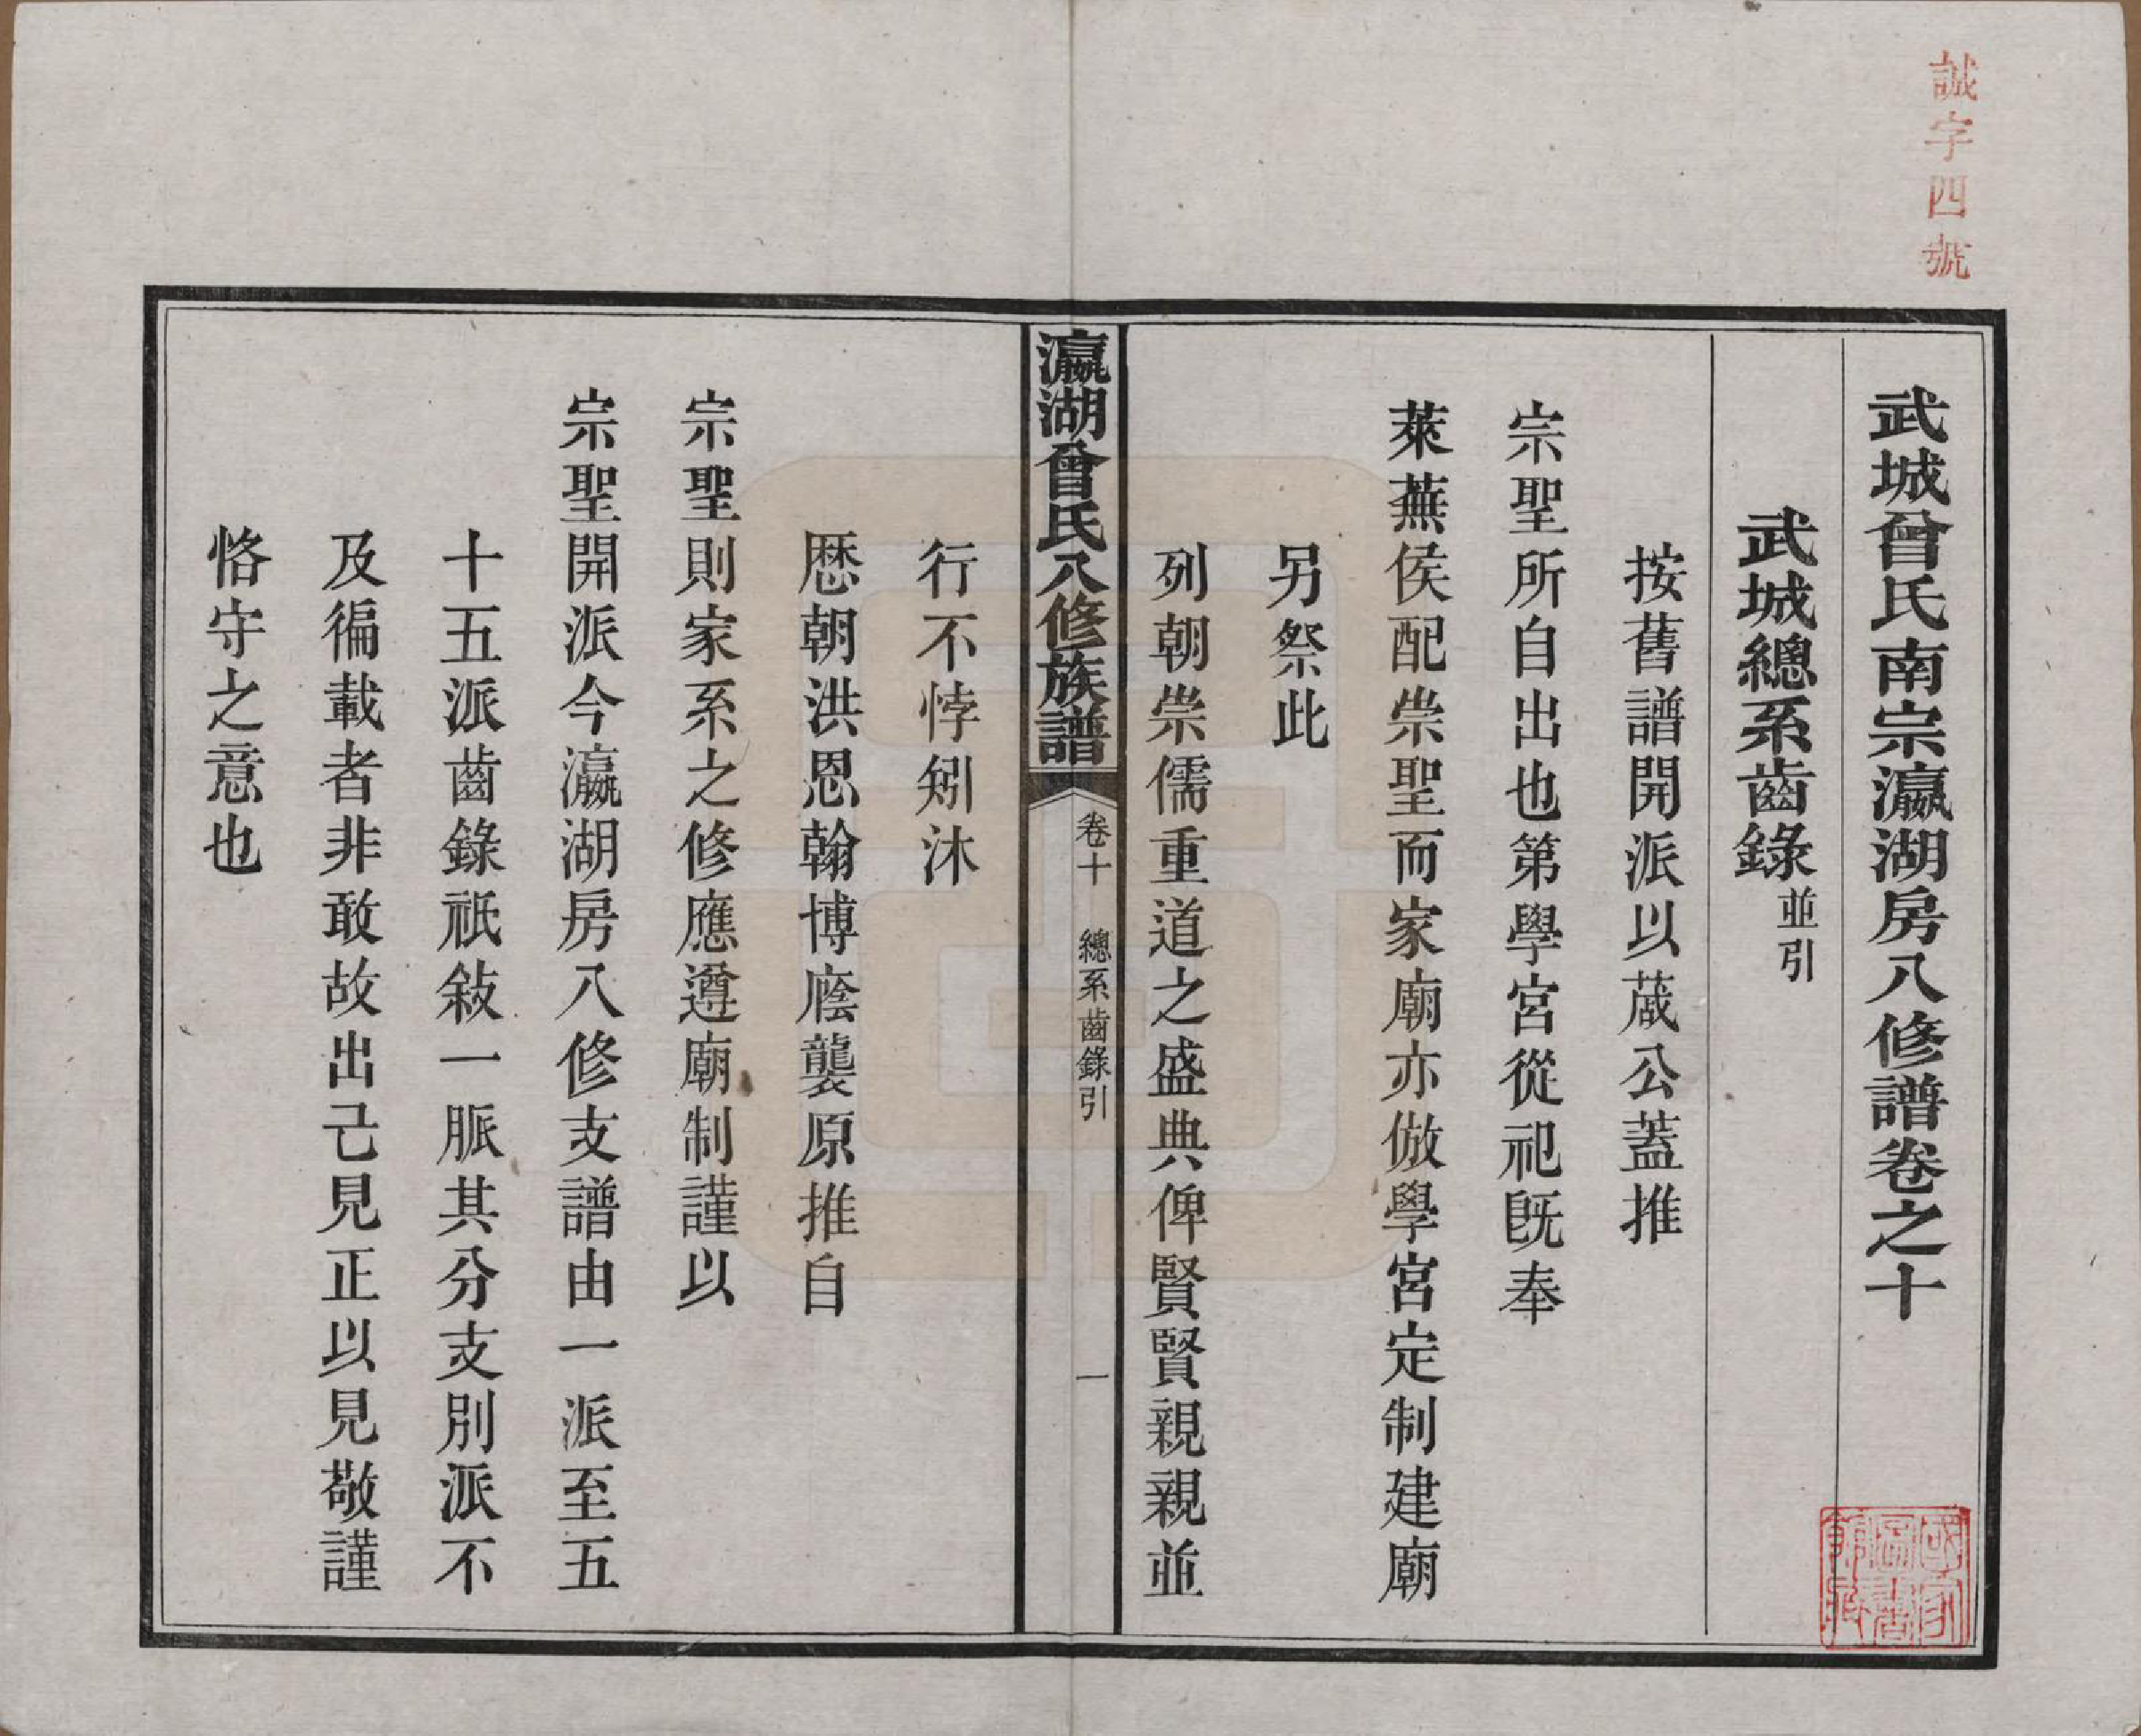 誠字四號
武城曾氏南宗瀛湖房八修譜卷之十
武城總系齒錄並引
按舊譜開派以蒧公蓋推
宗聖所自出也第學宮從祀既奉
萊蕪侯配崇聖而家廟亦倣學宮定制建廟
另祭此
列朝崇儒重道之盛典俾賢賢親親並
瀛湖曾氏八修族譜
卷十
總系齒錄引
一
行不悖矧沐
歷朝洪恩翰博廕襲原推自
宗聖則家系之修應遵廟制謹以
宗聖開派今瀛湖房八修支譜由一派至五
十五派齒錄祇敍一脈其分支別派不
及徧載者非敢故出己見正以見敬謹
恪守之意也
國家圖書館藏